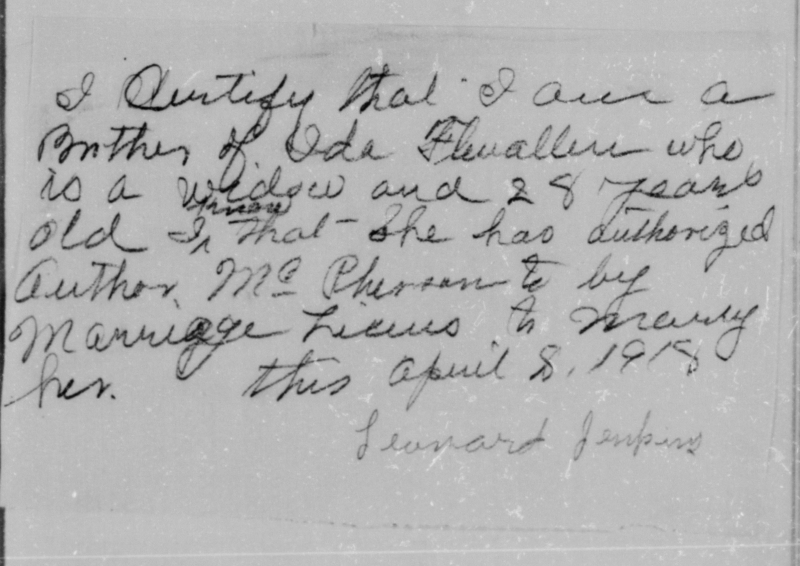 I Certify that I am a
Brother of Ida Flewallen who
is a widow and 28 years
old I know that she has authorized
Author Mc Pherson to by
Marriage Licens to Marry
her. this April 8, 1918
Leonard Jenkins